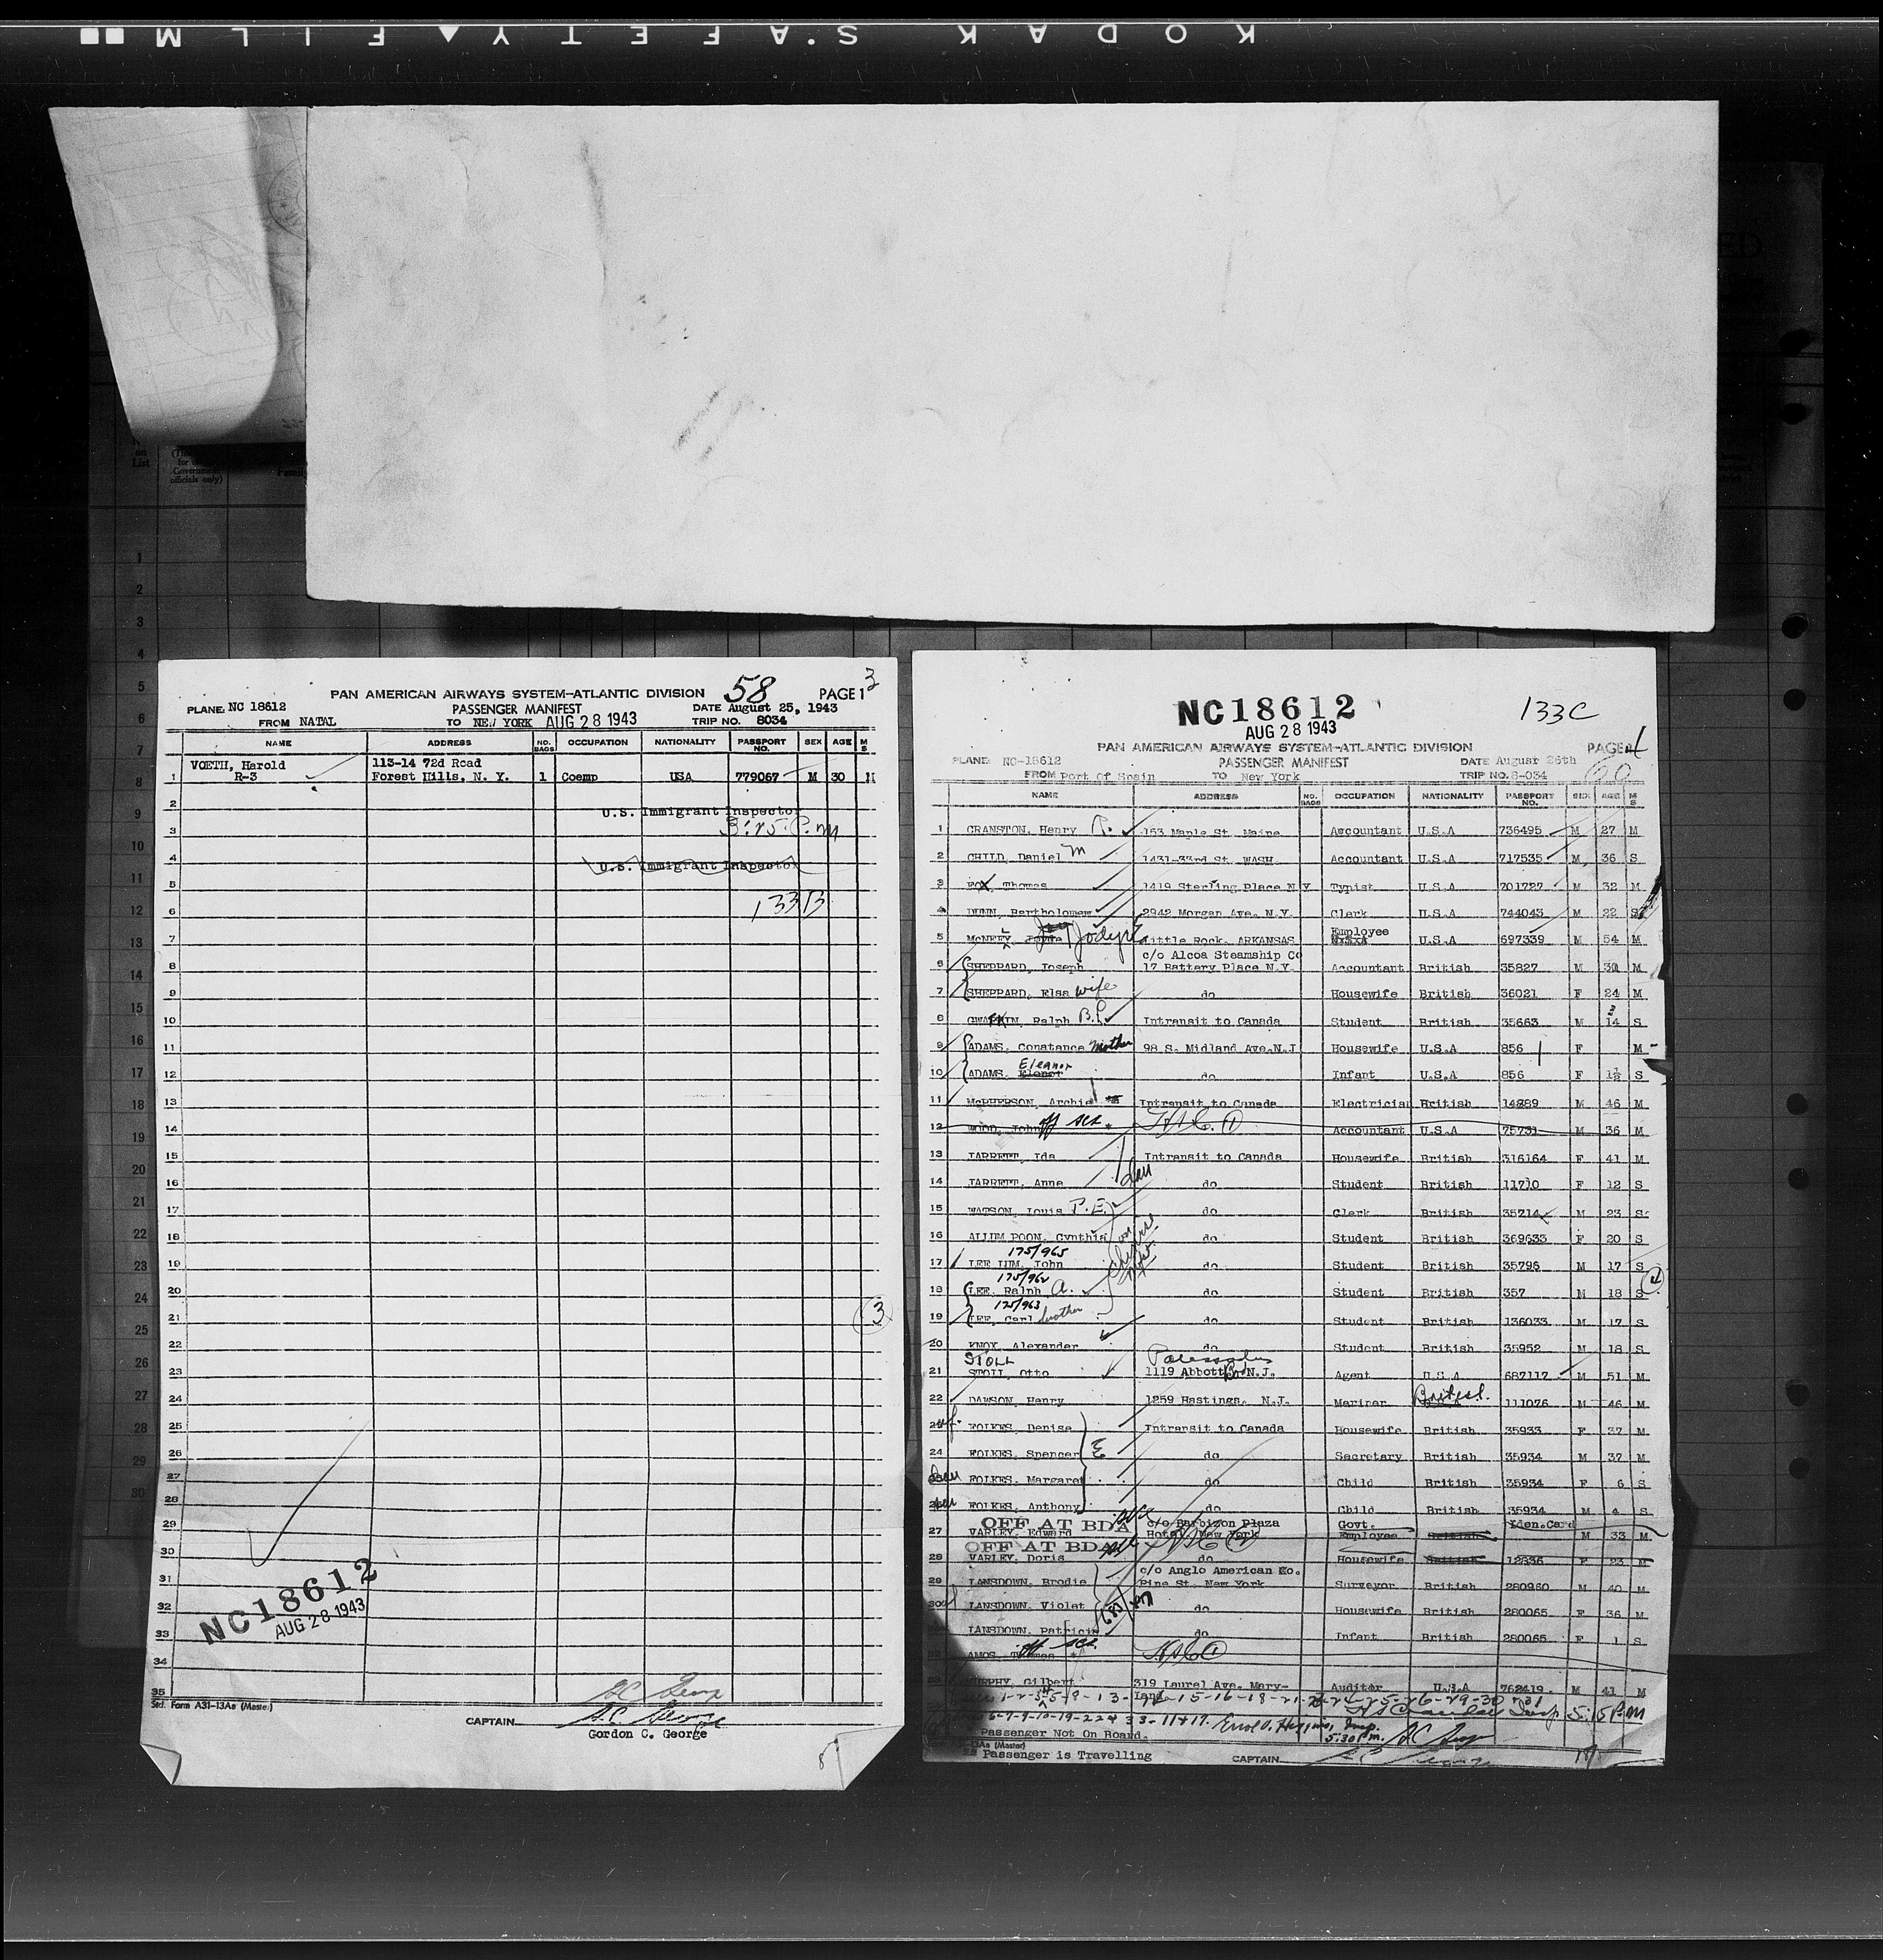 KODAK SAFETY FILM
on
List
for
Government
officials only)
1
2
3
4
5
6
7
8
9
10
11
12
13
14
15
16
17
18
19
20
21
22
23
24
25
26
27
28
29
30
PAN AMERICAN AIRWAYS SYSTEM-ATLANTIC DIVISION 58 PAGE 1 3
PLANE NC 18612 PASSENGER MANIFEST DATE August 25, 1943
FROM NATAL TO NEW YORK AUG 28 1943 TRIP NO. 8034
NAME ADDRESS NO. BAGS OCCUPATION NATIONALITY PASSPORT NO. SEX AGE M S
VOETH, Harold 113-14 72d Road
1 R-3 Forest Hills, N. Y. 1 Coemp USA 779067 M 30 M
2 U.S. Immigrant Inspector
3 3:25 P.M
4 U.S. Immigrant Inspector
5
6 133B
7
8
9
10
11
12
13
14
15
16
17
18
19
20
21 3
22
23
24
25
26
27
28
29
30
31
32
33
34
35
NC18612
AUG 28 1943
Std. Form A31-13Aa (Master)
CAPTAIN
Gordon C. George
NC18612 133C
AUG 28 1943
PAN AMERICAN AIRWAYS SYSTEM-ATLANTIC DIVISION PAGE 4
PLANE NC-18612 PASSENGER MANIFEST DATE August 26th
FROM Port Of Spain TO New York TRIP NO. 8-034 60
NAME ADDRESS NO. BAGS OCCUPATION NATIONALITY PASSPORT NO. SEX AGE M S
1 CRANSTON, Henry R. 153 Maple St. Maine Accountant U.S.A 736495 M 27 M
2 CHILD, Daniel M 1431-33rd St. WASH Accountant U.S.A 717535 M 36 S
3 FOX, Thomas 1419 Sterling Place N.Y Typist U.S.A 701727 M 32 M
4 DUNN, Bartholomew 2942 Morgan Ave. N.Y. Clerk U.S.A 744043 M 22 S
5 Little Rock, ARKANSAS Employee U.S.A 697339 M 54 M
c/o Alcoa Steamship Co
6 SHEPPARD, Joseph 17 Battery Place N.Y. Accountant British 35827 M M
7 SHEPPARD, Elsa wife do Housewife British 36021 F 24 M
8 GWATKIN, Ralph B. Intransit to Canada Student British 35663 M 14 S
9 ADAMS, Constance Mother 98 S. Midland Ave. N.J Housewife U.S.A 856 F M
Eleanor
10 ADAMS, do Infant U.S.A 856 F S
11 McPHERSON, Archie Intransit to Canada Electrician British 14889 M 46 M
12 WOOD, John off SCR Accountant U.S.A 75731 M 36 M
13 JARRETT, Ida Intransit to Canada Housewife British 316164 F 41 M
14 JARRETT, Anne do Student British 11710 F 12 S
15 WATSON, Louis P.E. do Clerk British 35214 M 23 S
16 ALLUM POON, Cynthia do Student British 369633 F 20 S
175/965
17 LEE LUM, John do Student British 35796 M 17 S
175/962
18 LEE, Ralph A. do Student British 357 M 18 S
175/963
19 LEE, Carl brother do Student British 136033 M 17 S
20 KNOX, Alexander do Student British 35952 M 18 S
STOLL
21 STOLL, Otto 1119 Abbott N.J. Agent U.S.A 687117 M 51 M
22 DAWSON, Henry 1259 Hastings, N.J. Mariner British 111076 M 46 M
23 FOLKES, Denise Intransit to Canada Housewife British 35933 F 37 M
24 FOLKES, Spencer do Secretary British 35934 M 37 M
25 FOLKES, Margaret do Child British 35934 F 6 S
26 FOLKES, Anthony do Child British 35934 M 4 S
OFF AT BDA c/o Barbizon Plaza Govt. Iden.Card
27 VARLEY, Edward Hotel New York Employee British M 33 M
OFF AT BDA
28 VARLEY, Doris do Housewife British 12336 F 23 M
c/o Anglo American Eo.
29 LANSDOWN, Brodie Pine St. New York Surveyor British 280960 M 40 M
30 LANSDOWN, Violet do Housewife British 280065 F 36 M
LANSDOWN, Patricia do Infant British 280065 F 1 S
AMOS, Thomas off SCR
MURPHY, Gilbert 319 Laurel Ave. Maryland Auditor U.S.A 762419 M 41 M
5:15 PM
Errol O. Higgins, Insp.
5:30 Pm.
Passenger Not On Board.
Passenger is Travelling CAPTAIN